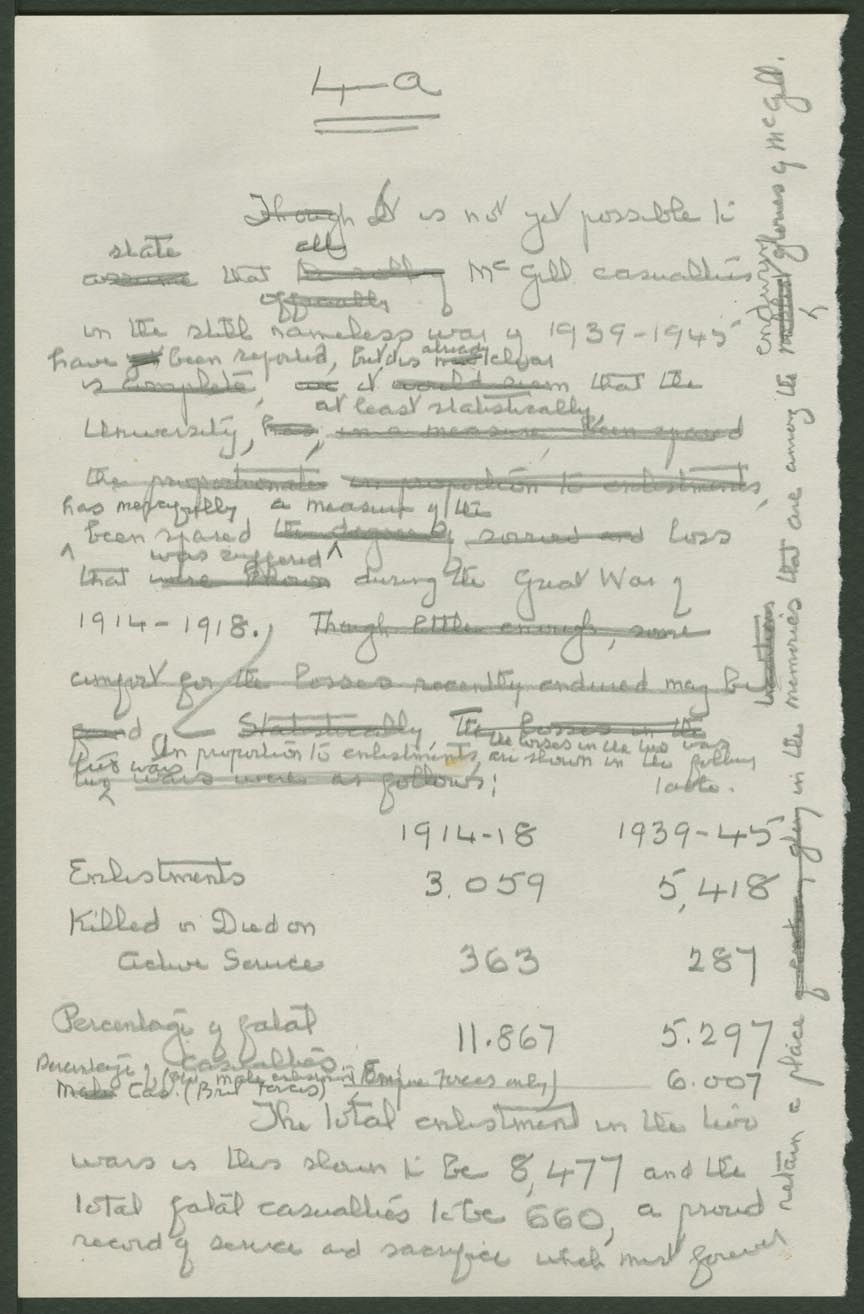 4-a
Though It is not yet possible to
state all
assume that McGill casualties
officially
in the still nameless war of 1939-1945
have been reported, but it is already clear
is complete, it would seem that the
at least statistically,
University, has, in a measure been spared
the proportionate in proportion to enlistments,
has mercifully a measure of the
been spared the degree of sorrow and loss
was suffered
that were known during the Great War of
1914-1918. Though little enough, some
comfort for the losses recently endured may be
Statistically The losses in the
In proportion to enlistments, the losses in the two wars
are shown in the following
two wars
two wars were as follows: table.
1914-18 1939-45
Enlistments 3.059 5,418
Killed or Died on
Active Service 363 287
Percentage of fatal 11.867 5.297
casualties
Percentage, (male enlistments Empire Forces only) 6.007
Male Cas. (Brit Forces)
The total enlistment in the two
wars is thus shown to be 8,477 and the
total fatal casualties to be 660, a proud
record of service and sacrifice which must forever
retain a place glory in the memories that are among the enduring glories of McGill.
traditions